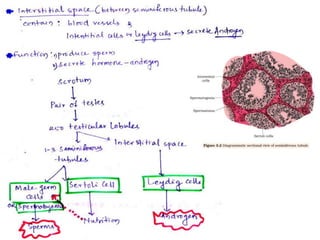 Interstitial space (between seminiferous tubule)
contain : blood vessels &
Interstitial cells or Leydig cells → secrete Androgen
Function : produce sperm
secrete hormone - androgen
Scrotum
Pair of testes
250 testicular Lobules
1-3 Seminiferous tubules
Interstitial space
Male germ cells or Spermatogonia
Sertoli Cell
Leydig Cells
Sperms
Nutrition
Androgen
Interstitial cells
Spermatogonia
Spermatozoa
Sertoli cells
Figure 3.2 Diagrammatic sectional view of seminiferous tubule